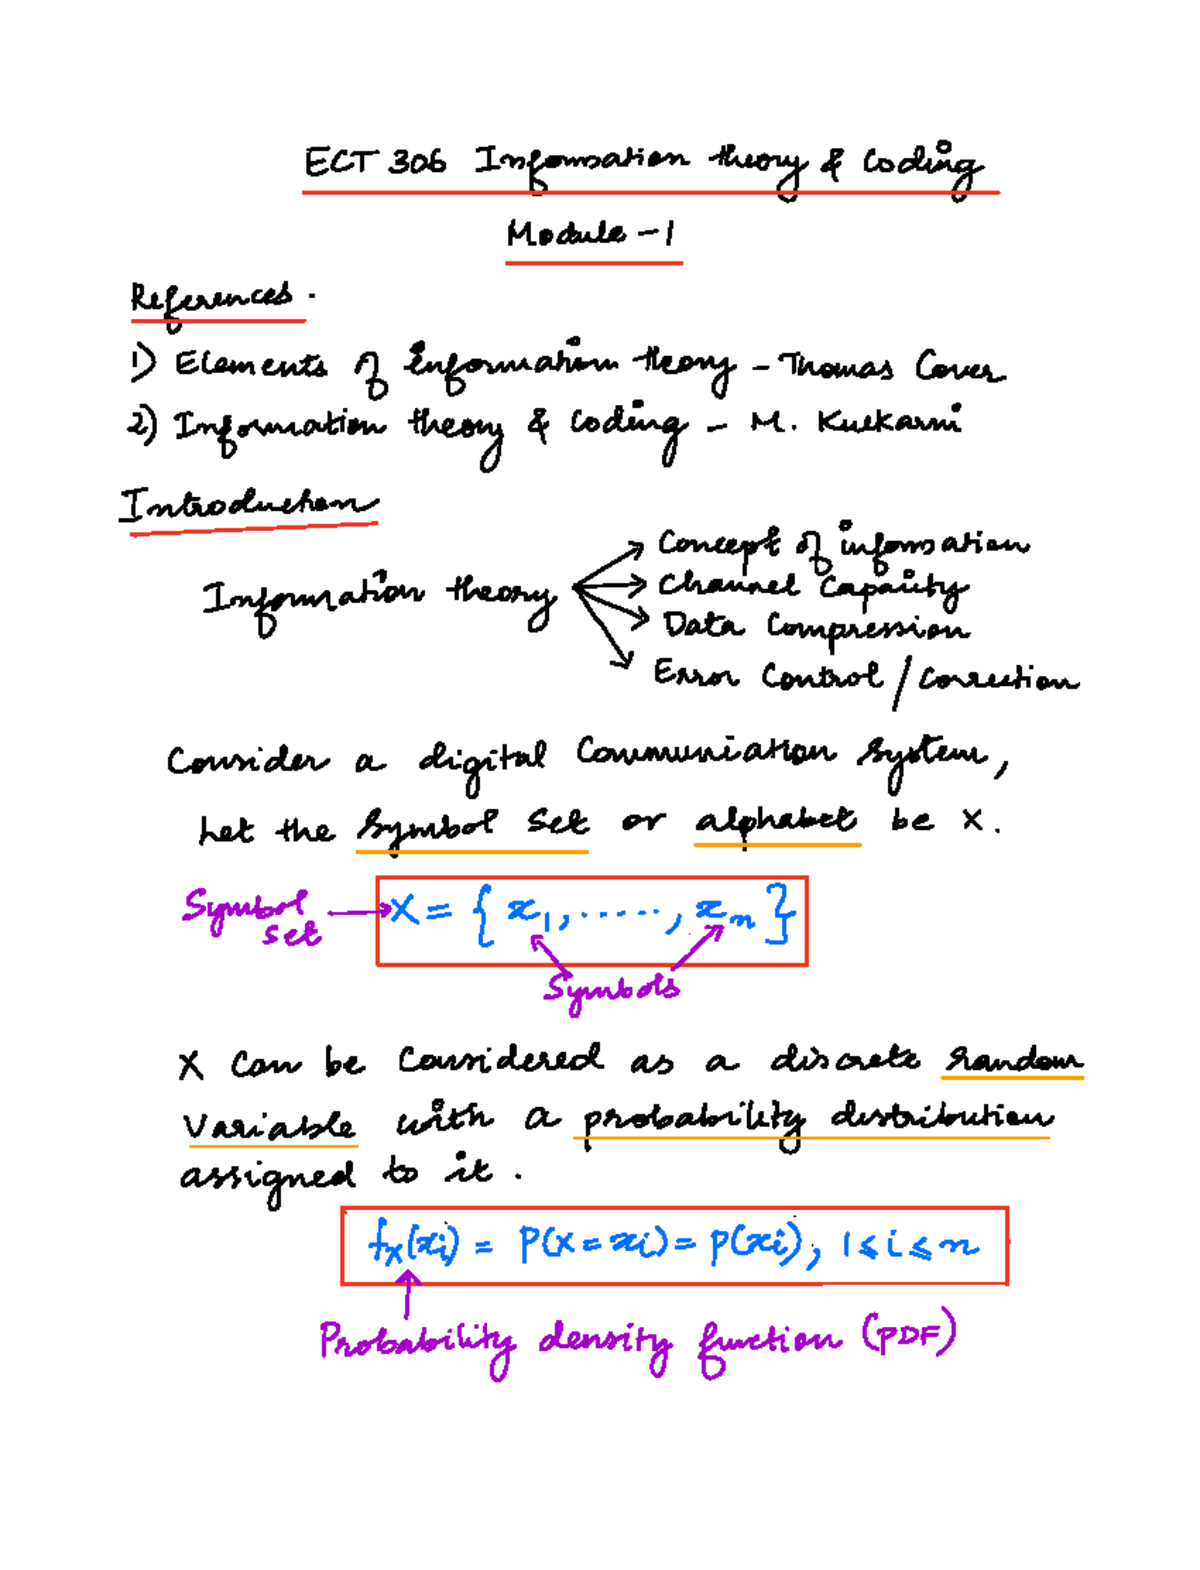 ECT 306 Information theory & Coding
Module - 1
References.
1) Elements of information theory - Thomas Cover
2) Information theory & Coding - M. Kulkarni
Introduction
Concept of information
Information theory
Channel Capacity
Data Compression
Error Control / Correction
Consider a digital Communication System,
Let the Symbol Set or alphabet be X.
Symbol set
X = { x₁, ......, xₙ }
Symbols
X can be Considered as a discrete random
Variable with a probability distribution
assigned to it.
fₓ(xᵢ) = P(X = xᵢ) = p(xᵢ), 1 ≤ i ≤ n
Probability density function (PDF)